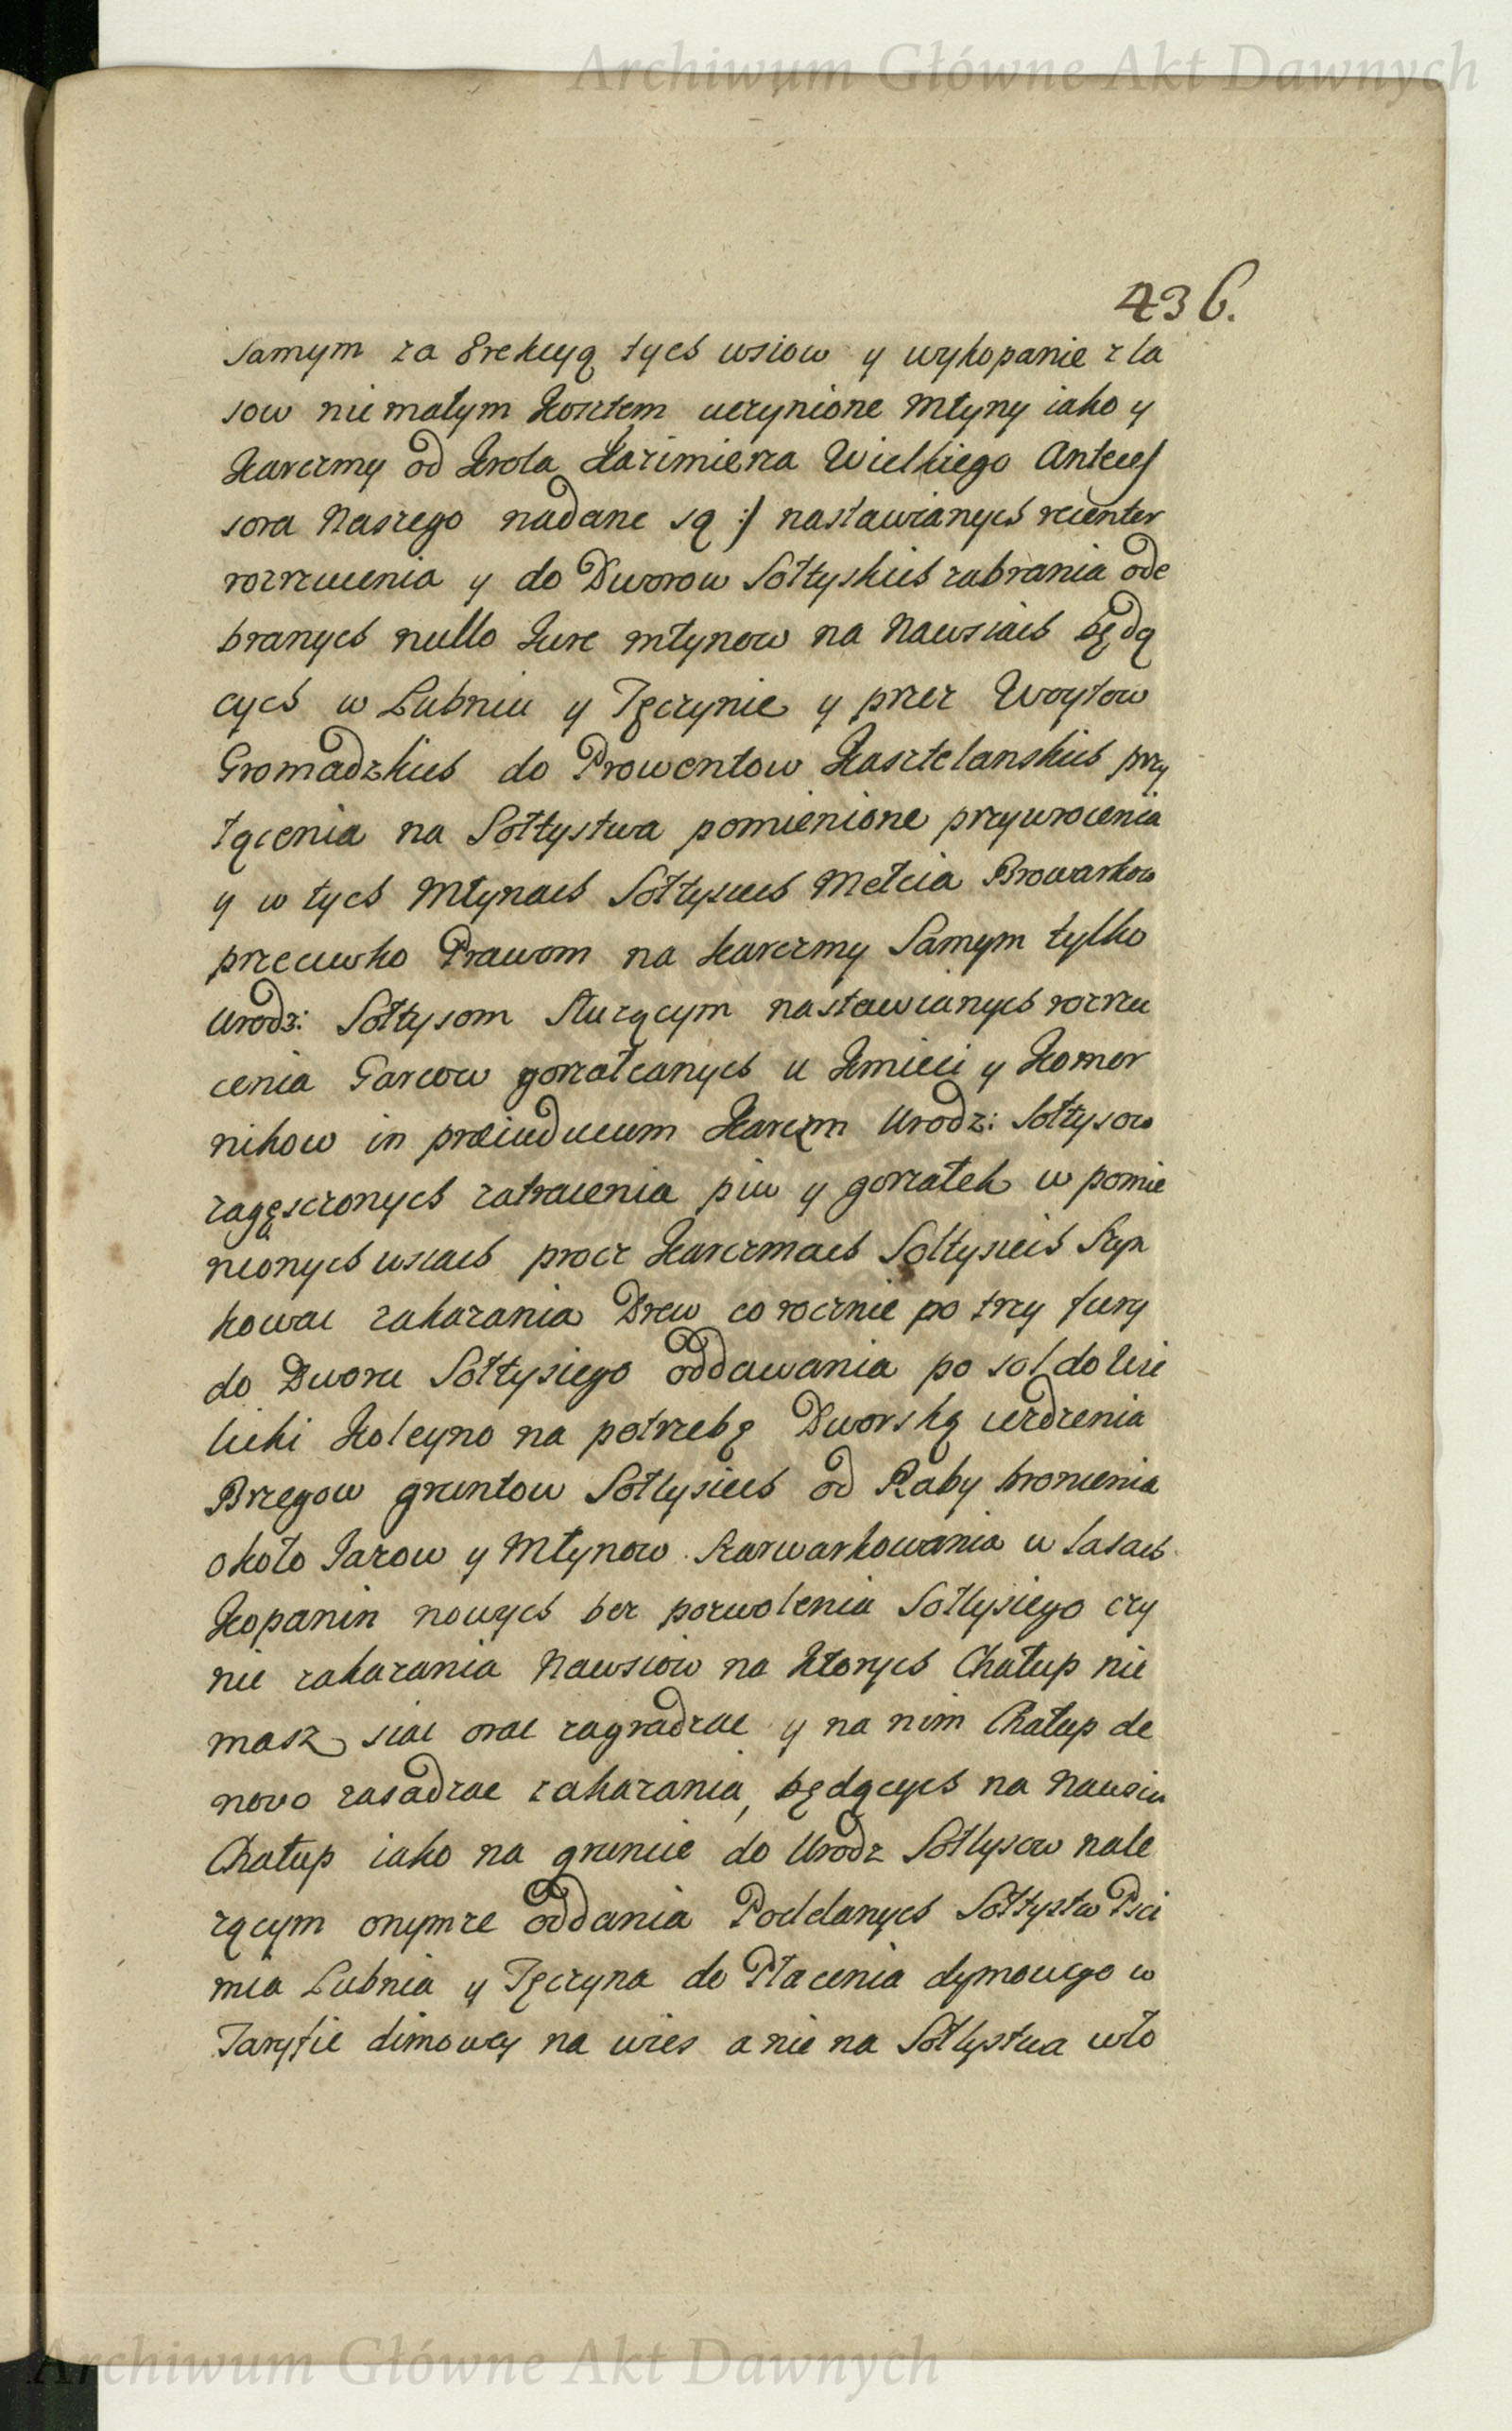 Archiwum Główne Akt Dawnych
436.
samym za Erekcyą tych wsiow y wykopanie z la
sow nie małym kosztem uczynione Młyny iako y
Karczmy od Krola Kazimierza Wielkiego Anteces
sora Naszego nadane są :/ nastawianych recenter
rozrzucenia y do Dworow Sołtyskich zabrania ode
branych nullo Jure młynow na Nawsiach będą
cych w Lubniu y Tęczynie y przez Woytow
Gromadzkich do Prowentow Kasztelanskich przy
łączenia na Sołtystwa pomienione przywrocenia
y w tych Młynach Sołtysich Melcia Browarkow
przeciwko Prawom na karczmy Samym tylko
Urodz: Sołtysom służącym nastawianych rozrzu
cenia Garcow gorzałczanych u Kmieci y Komor
nikow in præiudicium Karczm Urodz: Sołtysow
zagęszczonych zatracenia piw y gorzałek w pomie
nionych wsiach procz Karczmach Sołtysich Szyn
kowac zakazania Drew co rocznie po trzy fury
do Dworu Sołtysiego oddawania po sol do Wie
liczki Koleyno na potrzebę Dworską ieżdzenia
Brzegow gruntow Sołtysich od Raby bronienia
około Jazow y Młynow Szarwarkowania w lasach
Kopanin nowych bez pozwolenia Sołtysiego czy
nic zakazania Nawsiow na ktorych Chałup nie
masz siac orac zagradzac y na nim Chałup de
novo zasadzac zakazania, będących na Nawsiu
Chałup iako na gruncie do Urodz Sołtysow nale
zącym onymze oddania Poddanych Sołtystw Psci
mia Lubnia y Tęczyna do Płacenia dymowego w
Taryfie dimowey na wies a nie na Sołtystwa wło
Archiwum Główne Akt Dawnych